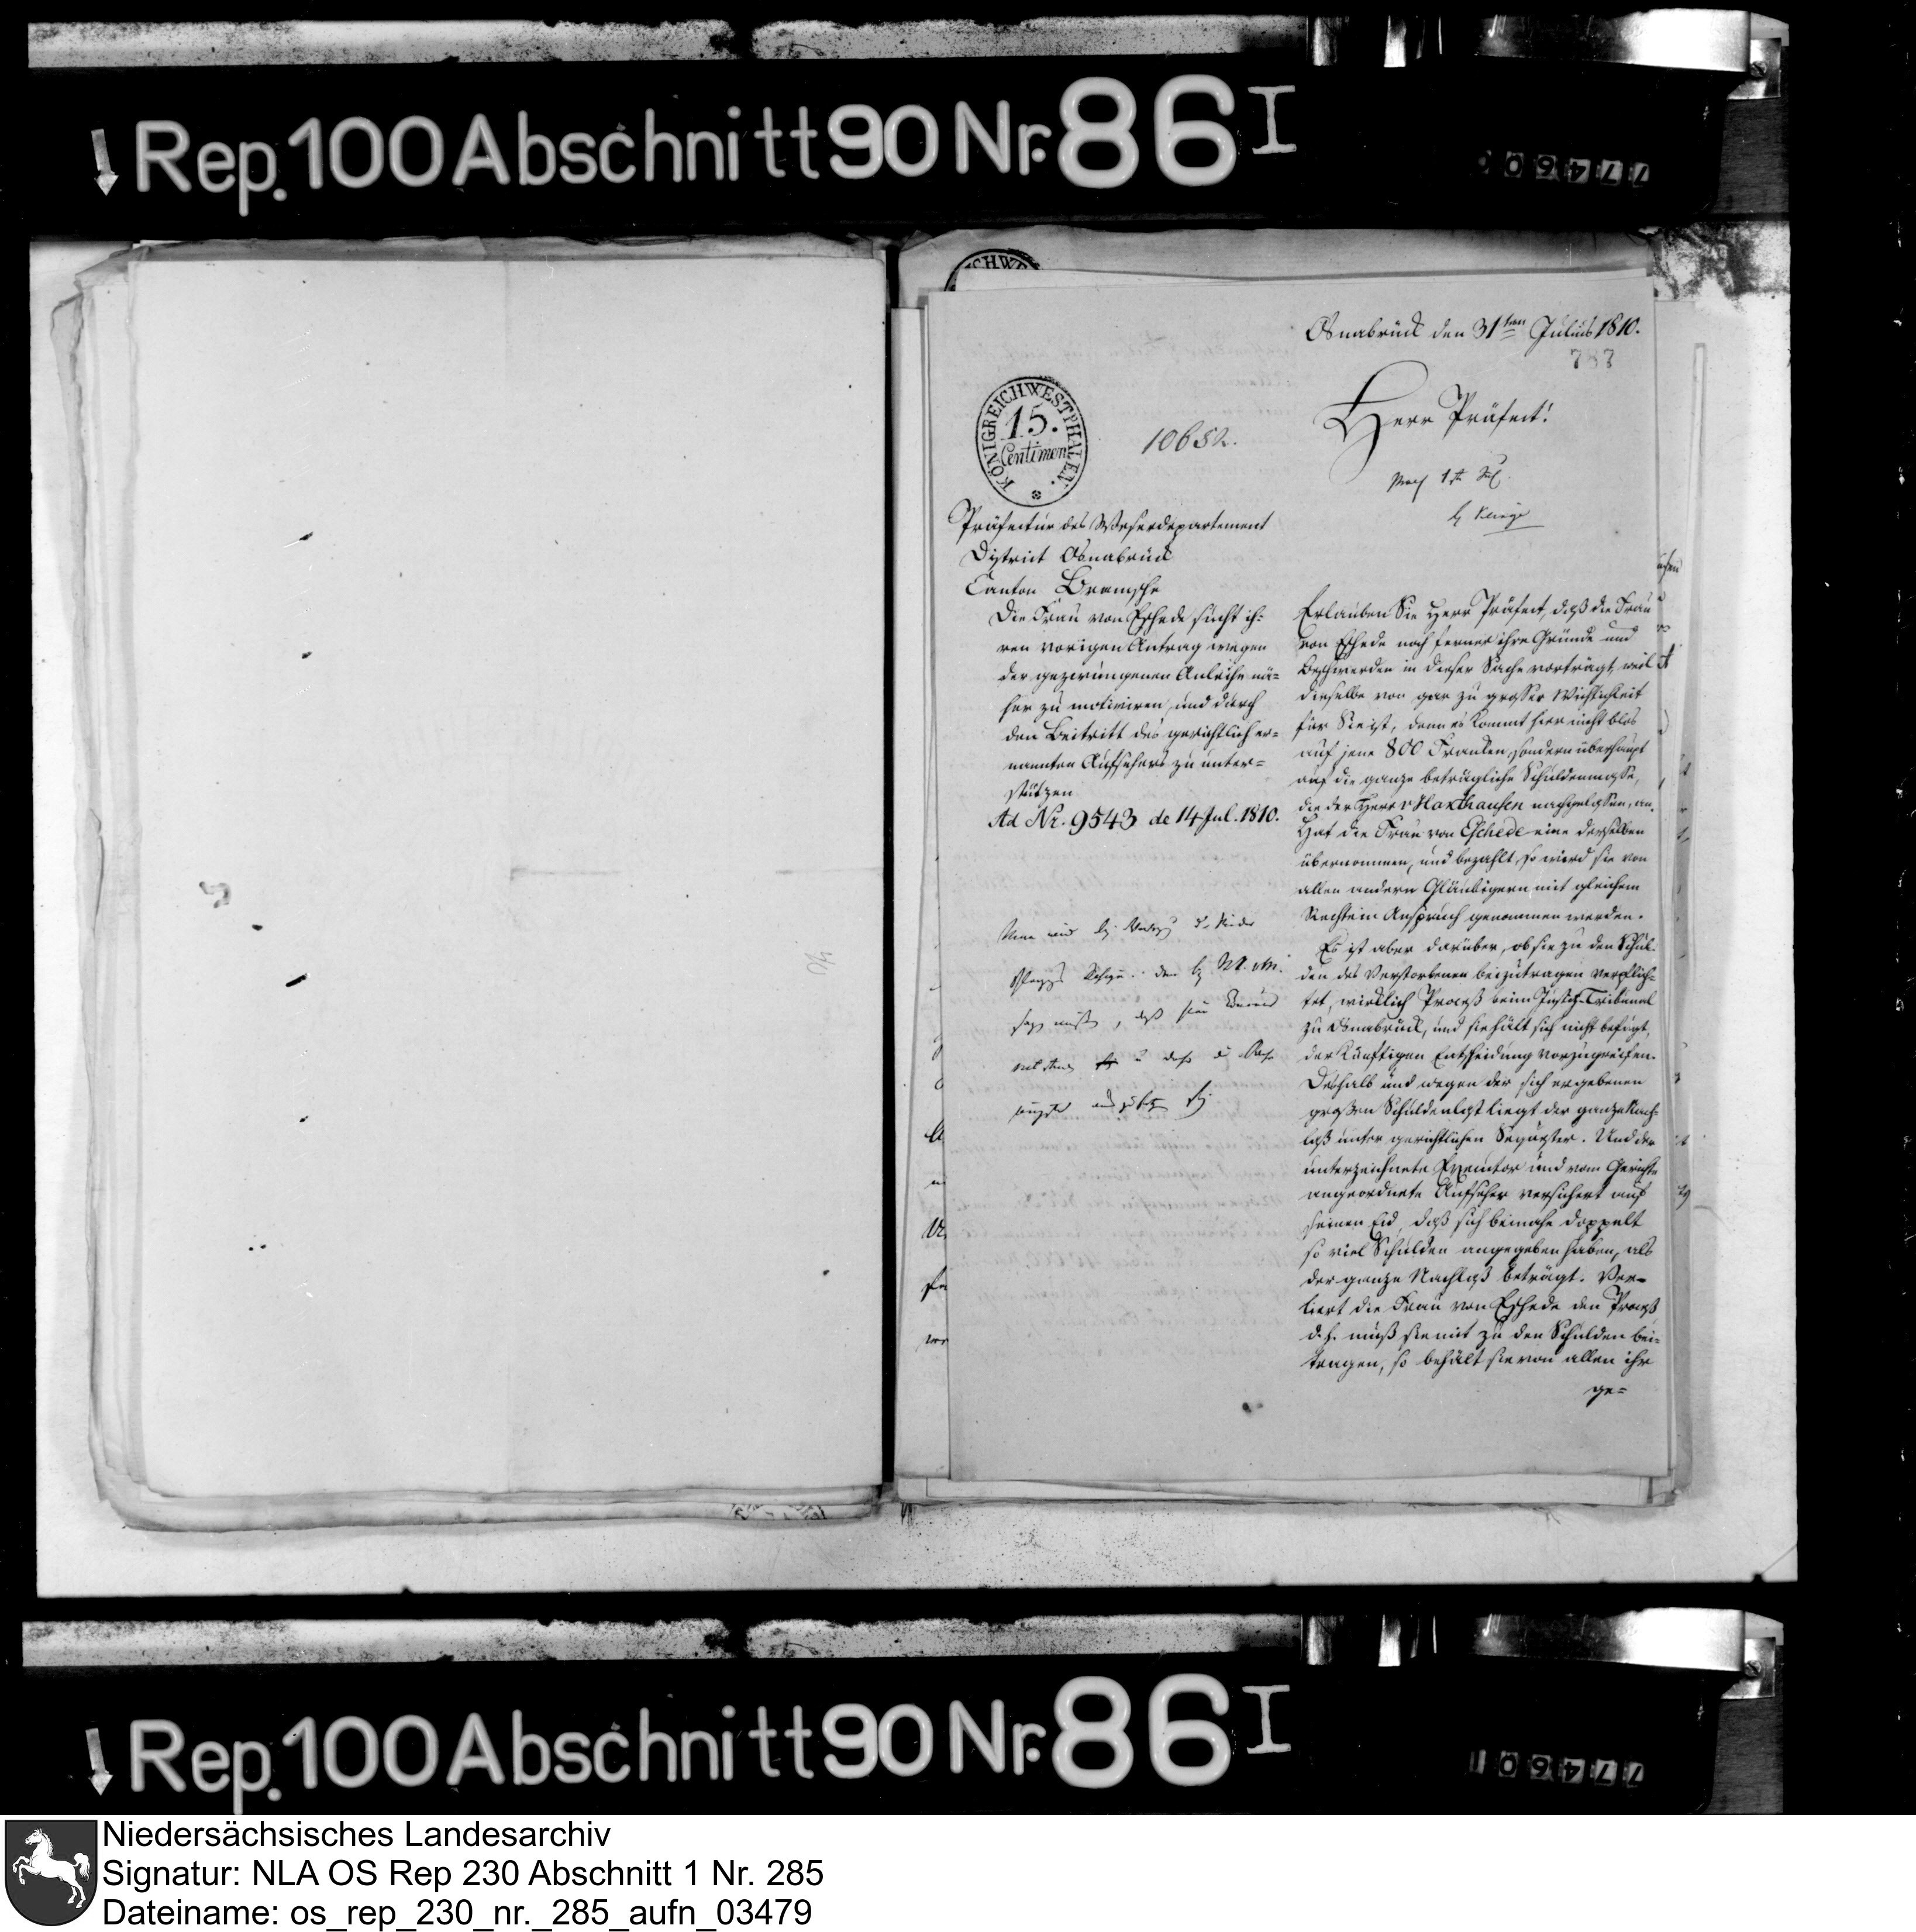 Rep. 100 Abschnitt 90 Nr. 86 I
Osnabrück den 31ten Julius 1810.
KÖNIGREICH WESTPHALEN.
15.
Centimen
10652.
Herr Präfect!
Präfectur des Weserdepartement
District Osnabrück
Canton Bramsche
Die Frau von Eschede sucht ih-
ren vorigen Antrag wegen
der gezwungenen Anleihe nä-
her zu motiviren, und durch
den Beitritt des gerichtlich er-
nannten Aufsehers zu unter-
stützen
Ad Nr. 9543 de 14 Jul. 1810.
Erlauben Sie Herr Präfect, daß die Frau
von Eschede noch ferner ihre Gründe und
Beschwerden in dieser Sache vorträgt, weil
dieselbe von gar zu grosser Wichtichkeit
für Sie ist, denn es kommt hier nicht blos
auf jene 800 Franken, sondern überhaupt
auf die ganze beträgliche Schuldenmasse,
die der Herr v Haxthausen nachgelassen, an.
Hat die Frau von Eschede eine derselben
übernommen, und bezahlt, so wird sie von
allen andern Gläubigern mit gleichem
Rechte in Anspruch genommen werden.
Es ist aber darüber, ob sie zu den Schul-
den des Verstorbenen beizutragen verpflich-
tet, wirklich Proceß beim Justiz-Tribunal
zu Osnabrück, und sie hält sich nicht befugt,
der künftigen Entscheidung vorzugreifen.
Deshalb und wegen der sich ergebenen
großen Schuldenlast liegt der ganze Nach-
laß unter gerichtlichen Sequester. Und der
unterzeichnete Executor und vom Gerichte
angeordnete Aufseher versichert auf
seinen Eid, daß sich beinahe doppelt
so viel Schulden angegeben haben, als
der ganze Nachlaß beträgt. Ver-
liert die Frau von Eschede den Proceß
d. h. muß sie mit zu den Schulden bei-
tragen, so behält sie von allen ihr
ge-
Rep. 100 Abschnitt 90 Nr. 86 I
Niedersächsisches Landesarchiv
Signatur: NLA OS Rep 230 Abschnitt 1 Nr. 285
Dateiname: os_rep_230_nr._285_aufn_03479